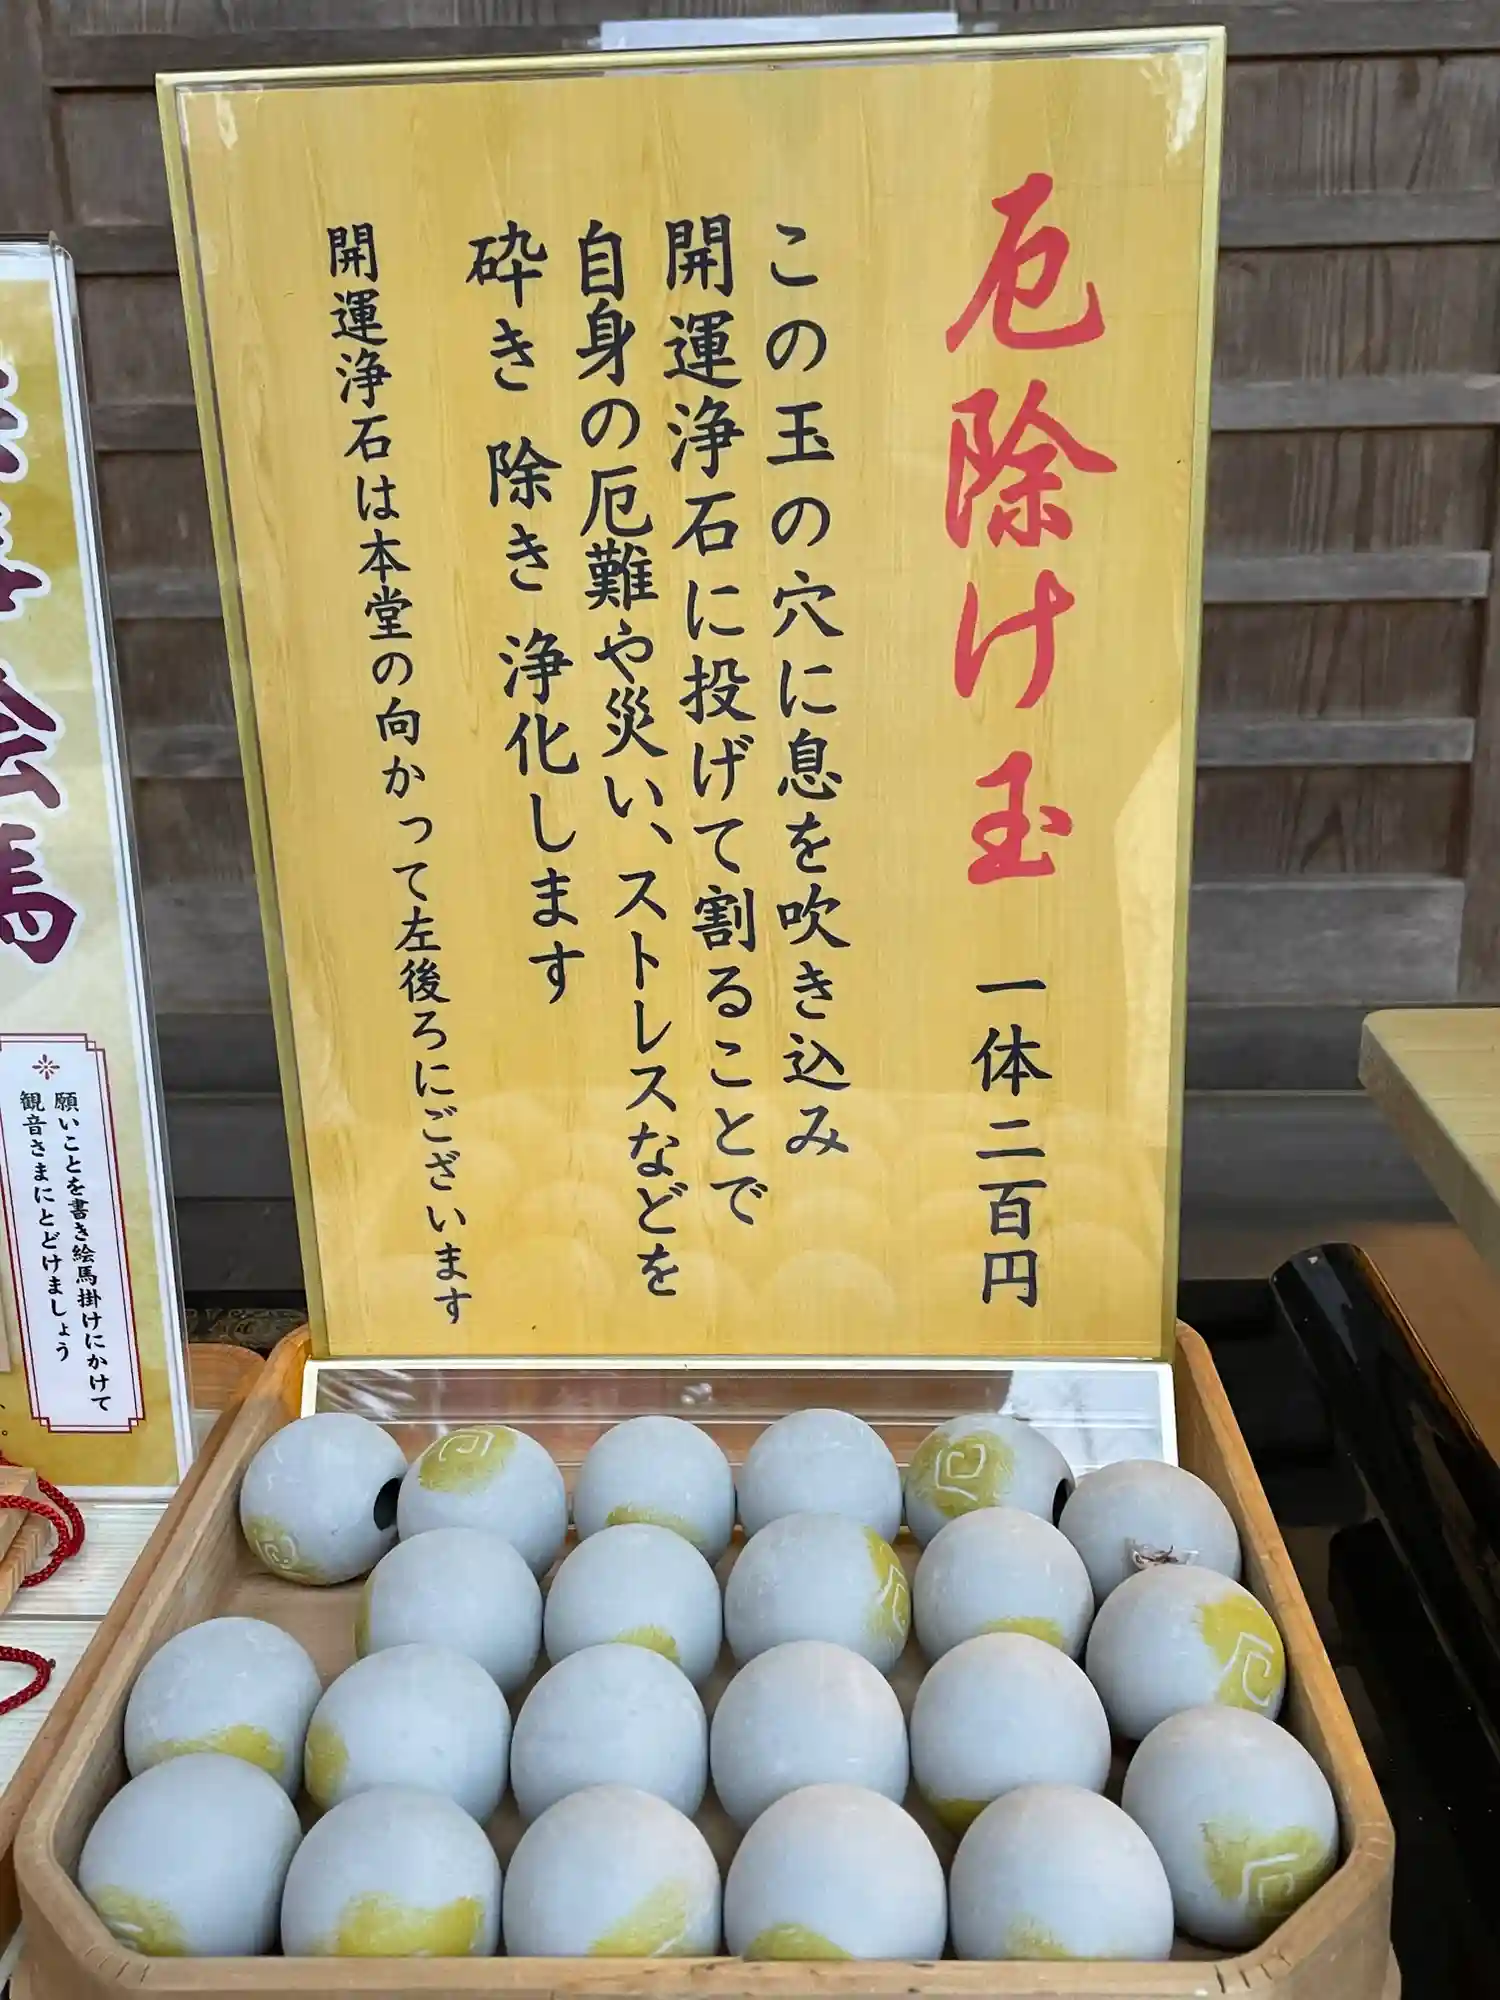 厄除け玉 一体二百円
この玉の穴に息を吹き込み
開運浄石に投げて割ることで
自身の厄難や災い、ストレスなどを
砕き 除き 浄化します
開運浄石は本堂の向かって左後ろにございます
絵馬
願いことを書き絵馬掛けにかけて
観音さまにとどけましょう
厄
厄
厄